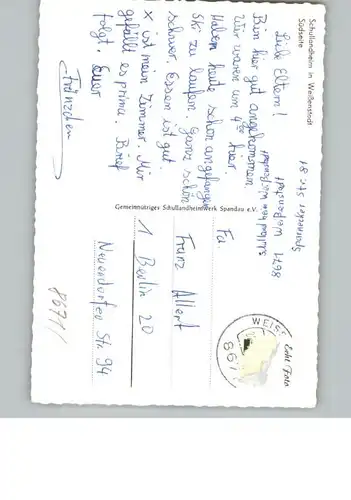 Schullandheim in Weißenstadt
Südseite
Liebe Eltern!
Bin hier gut angekommen.
Wir waren um 4 00 hier.
Haben heute schon angefangen
Ski zu laufen. Ganz schön
schwer. Essen ist gut.
X ist mein Zimmer. Mir
gefällt es prima. Brief
folgt. Euer
Fränzchen
Gemeinnütziges Schullandheimwerk Spandau e.V.
8671 Weißenstadt
Fa
Franz Allert
1 Berlin 20
Neuendorfer Str. 94
Echt Foto
WEISS
867
8671/